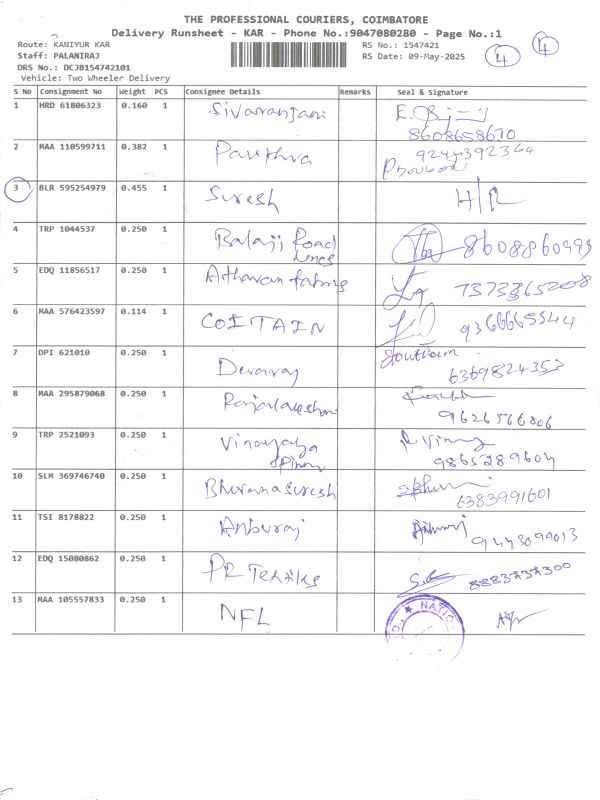 THE PROFESSIONAL COURIERS, COIMBATORE
Delivery Runsheet - KAR - Phone No.:9047080280 - Page No.:1
Route: KANIYUR KAR
RS No.: 1547421
4
4
Staff: PALANIRAJ
RS Date: 09-May-2025
DRS No.: DCJB154742101
Vehicle: Two Wheeler Delivery
S No Consignment No Weight PCS Consignee Details Remarks Seal & Signature
1 HRD 61806323 0.160 1 Sivaranjani
8608658670
2 MAA 110599711 0.382 1 Pavithra 9244392364
3 BLR 595254979 0.455 1 Suresh H/R
4 TRP 1044537 0.250 1 Balaji Road 8608860493
Lines
5 EDQ 11856517 0.250 1 Atharvan fabrics 7373865208
6 MAA 576423597 0.114 1 COITAIN 9366665544
7 DPI 621010 0.250 1 Devaraj Goutham
6369824353
8 MAA 295879068 0.250 1 Rajalakshmi
9626566806
9 TRP 2521093 0.250 1 Vinayaga R. Vinay
9865289604
10 SLM 369746740 0.250 1 Bhuvanasuresh
6383991601
11 TSI 8178822 0.250 1 Anburaj
9443099013
12 EDQ 15080862 0.250 1 PR Textiles 8883737300
13 MAA 105557833 0.250 1 NFL NATIO